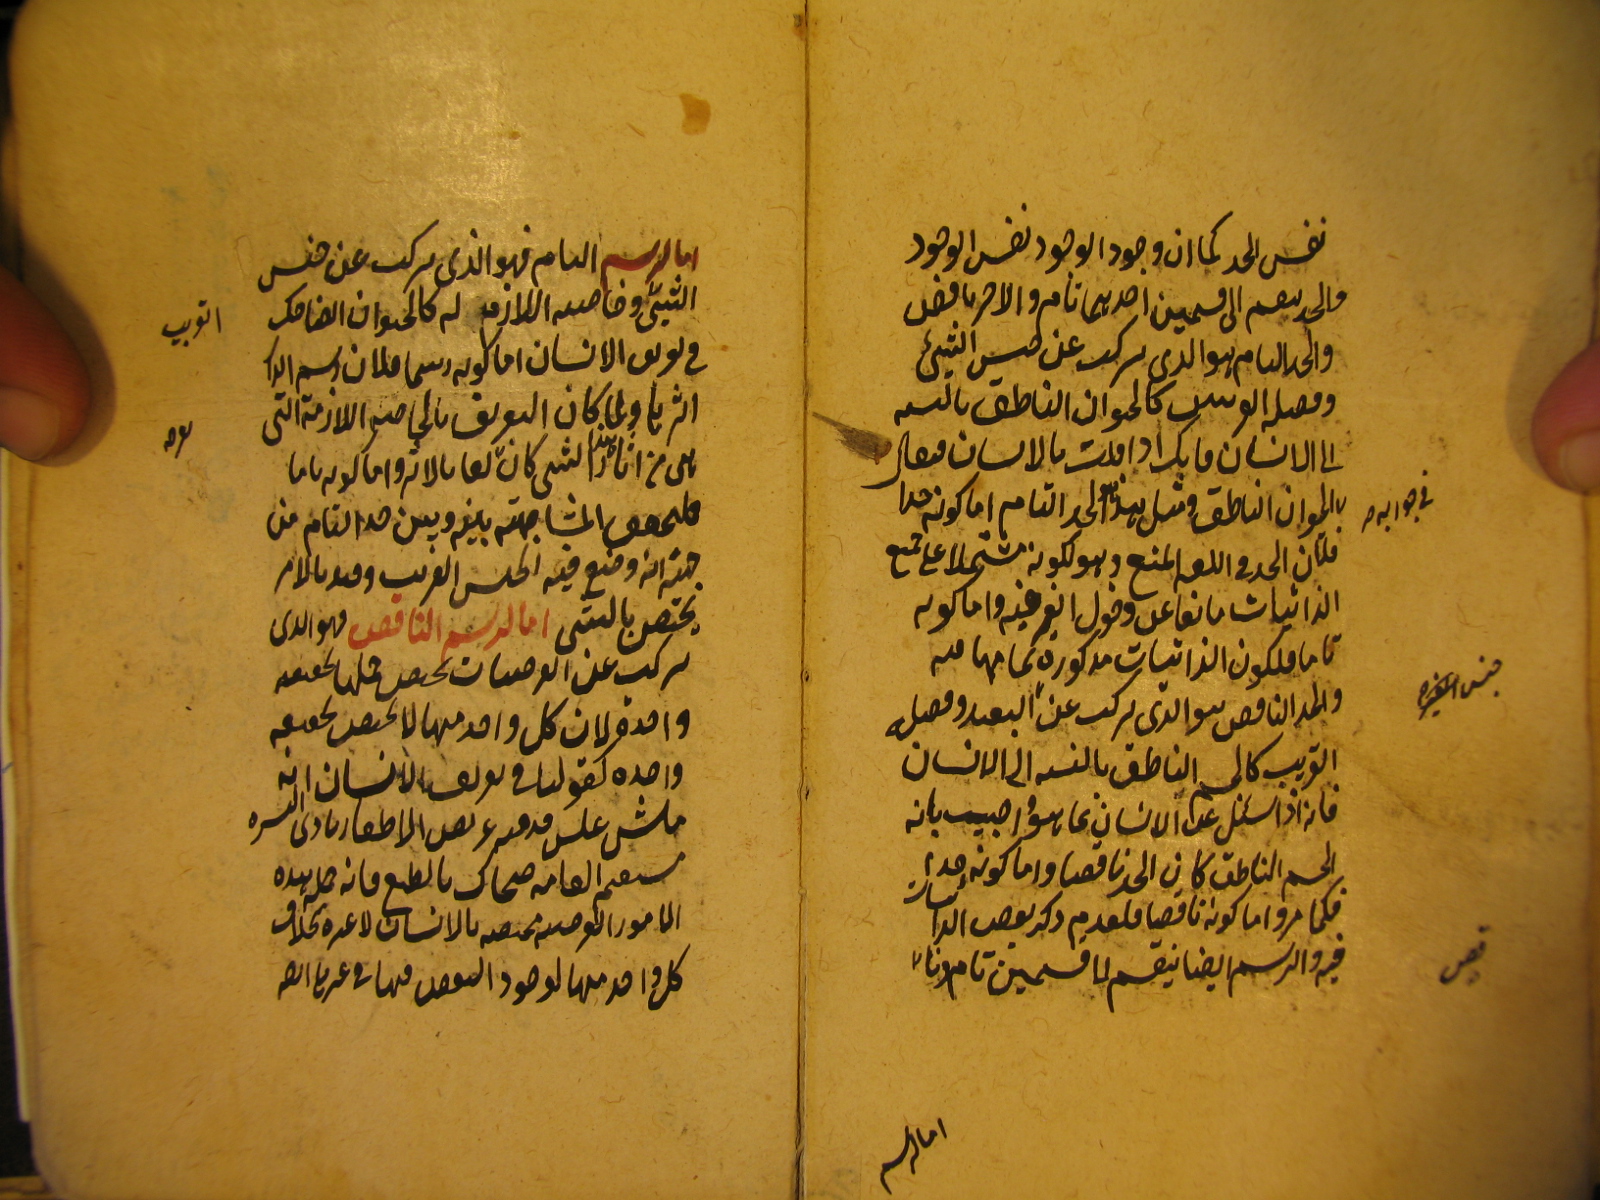 نفس الحد كما ان وجود الوجود نفس الوجود
والحد ينقسم الى قسمين احدهما تام والاخر ناقص
والحد التام هو الذى يركب عن جنس الشئ
وفصله القريبين كالحيوان الناطق بالنسبه
الى الانسان فانك اذا قلت ما الانسان فيقال
بالحيوان الناطق ومثل هذا الحد التام اما كونه حدا
فلان الحد فى اللغه المنع وهو لكونه مشتملا على جميع
الذاتيات مانعا عن دخول الغير فيه واما كونه
تاما فلكون الذاتيات مذكوره بتمامها فيه
والحد الناقص هو الذى يركب عن البعيد وفصله
القريب كالجسم الناطق بالنسبه الى الانسان
فانه اذا سئل عن الانسان بما هو واجيب بانه
الجسم الناطق كان الحد ناقصا واما كونه حدا
فكما مر واما كونه ناقصا فلعدم ذكر بعض الذاتيات
فيه والرسم ايضا ينقسم الى قسمين تام ونا
فى جوابه
جنس
قص
اما الرسم
اما الرسم التام فهو الذى يركب عن جنس
الشئ وخاصته اللازمه له كالحيوان الضاحك
فى تعريف الانسان اما كونه رسما فلان رسم الدار
اثرها ولما كان التعريف بالخاصه اللازمة التى
هى من اثار الشئ كان تعريفا بالاثر واما كونه تاما
فلتحقق المشابهته بينه وبين حد التام من
جهة انه وضع فيه الجنس القريب وقيد بالامر
يختص بالشئ اما الرسم الناقص فهو الذى
يركب عن العرضيات تختص جملتها بحقيقه
واحدة لان كل واحد منها لا يختص بحقيقه
واحده كقولنا فى تعريف الانسان انه
ماش على قدميه عريض الاظفار بادى البشره
مستقيم القامه ضحاك بالطبع فانه جمله هذه
الامور العرضيه مختصه بالانسان لا غيره بخلاف
كل واحد منها لوجود البعض منها فى غيره ايضا
القريب